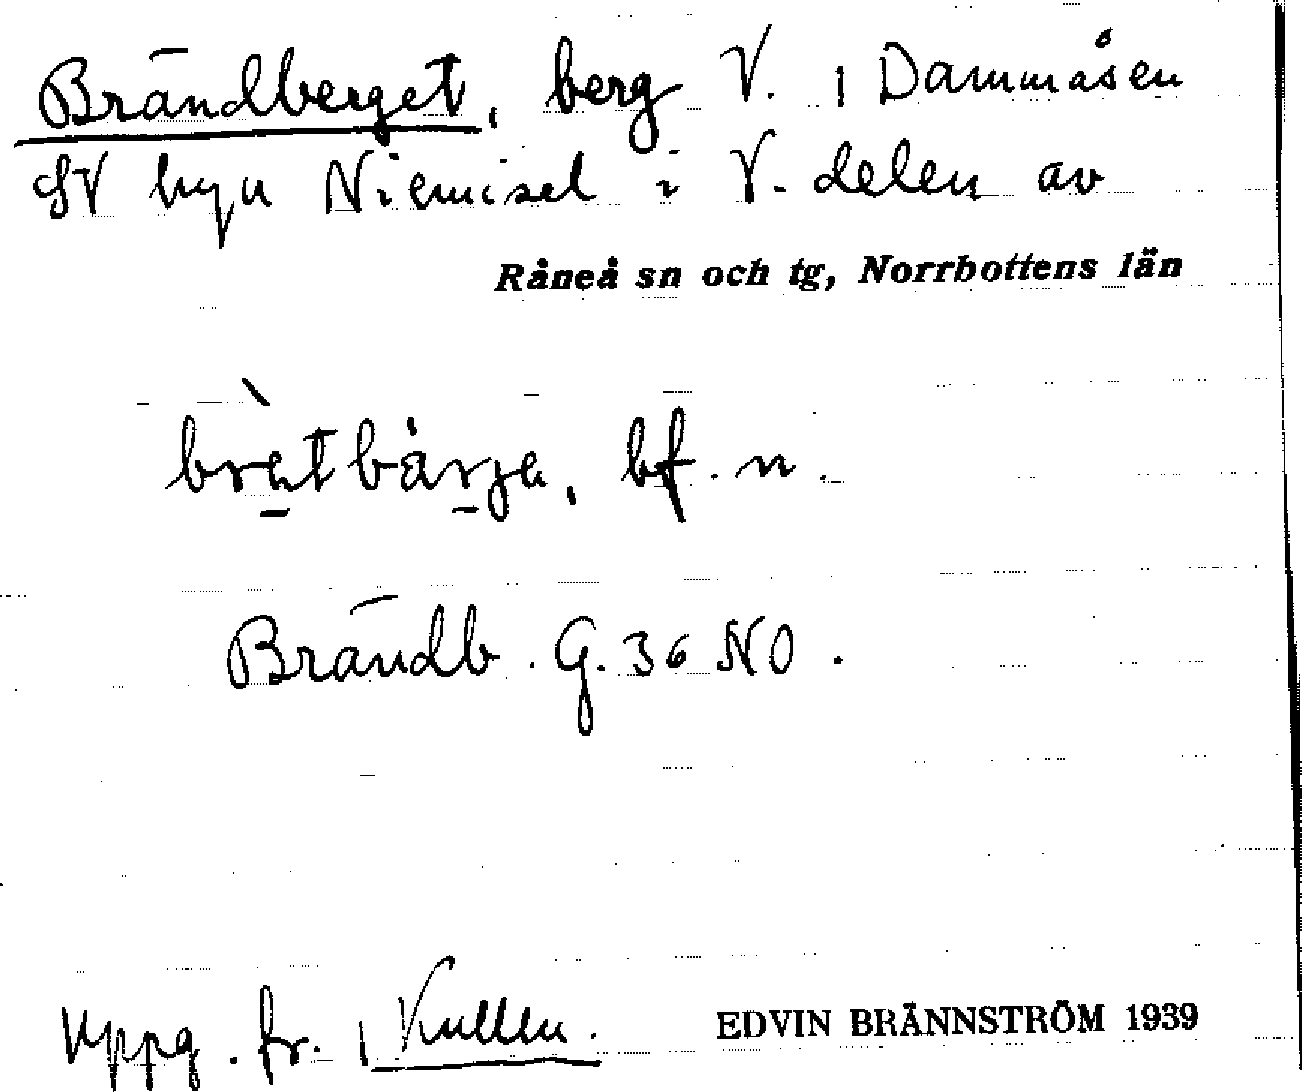 Brändberget, berg V. ı Dammåsen
SV byn Niemisel i V. delen av
Råneå sn och tg, Norrbottens län
bf. n.
Brändb. G. 36 NO.
Uppg. fr. ı Kullen.
EDVIN BRÄNNSTRÖM 1939